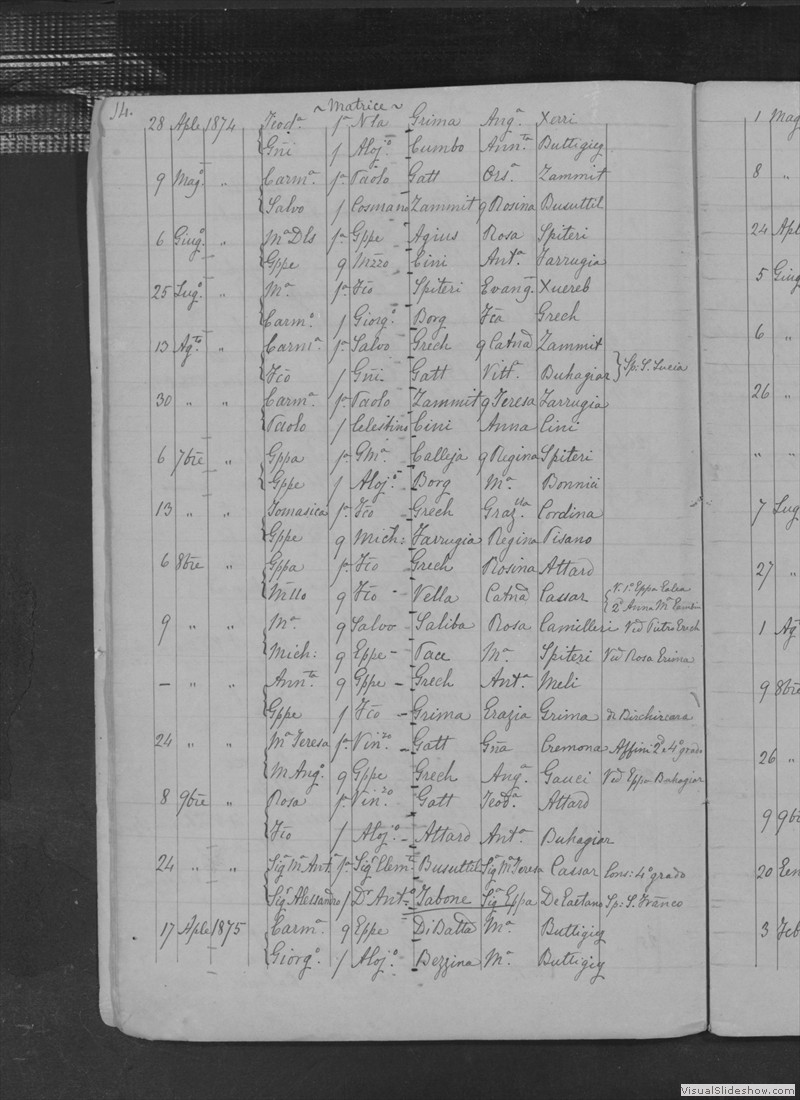 14.
~ Matrice ~
28 Aple 1874 Teodª fª Nla Grima Angª Xerri
Gñi f Alojº Cumbo Annta Buttigieg
9 Magº " Carmª fª Paolo Gatt Orsª Zammit
Salvo f Cosmano Zammit q Rosina Busuttil
6 Giugº " Mª Dls fª Gppe Agius Rosa Spiteri
Gppe q Mzzo Cini Antª Farrugia
25 Lugº " Mª fª Fco Spiteri Evang. Xuereb
Carmº f Giorgº Borg Fca Grech
13 Agto " Carmª fª Salvo Grech q Catnª Zammit
Fco f Gñi Gatt Vittª Buhagiar } Sp: S. Lucia
30 " " Carmª fª Paolo Zammit q Teresa Farrugia
Paolo f Celestino Cini Anna Cini
6 7bre " Gppa fª Gmª Calleja q Regina Spiteri
Gppe f Alojº Borg Mª Bonnici
13 " " Tomasica fª Fco Grech Grazlla Cordina
Gppe q Mich: Farrugia Regina Pisano
6 8bre " Gppa fª Fco Grech Rosina Attard
Nillo q Fco - Vella Catnª Cassar { V. 1º Gppa Galea
2ª Anna Mª
9 " " Mª q Salvo Saliba Rosa Camilleri Vedª Pietro Grech
Mich: q Gppe - Pace Mª Spiteri Vedº Rosa Grima
- " " Annta q Gppe - Grech Antª Meli
Gppe f Fco - Grima Grazia Grima di Birchircara
24 " " Mª Teresa fª Vinzo - Gatt Gña Cremona Affini 2º e 4º grado
M Angº q Gppe Grech Angª Gauci Vedº Gppa Buhagiar
8 9bre " Rosa fª Vinzo Gatt Teodª Attard
Fco f Alojº - Attard Antª Buhagiar
24 " " Sigª Mª Antª fª Sigr Clemte Busuttil Sigª Mª Teresa Cassar Cons: 4º grado
Sigr Alessandro f Dr Antº Tabone Sigª Gppa De Gaetano Sp: S. Franco
17 Aple 1875 Carmª q Gppe Di Batta Mª Buttigieg
Giorgº f Alojº Bezzina Mª Buttigieg
1 Mag
8 "
24 Apl
5 Giug
6 "
26 "
" "
7 Lug
27 "
1 Ag
9 8bre
26 "
9 9bre
20 Gen
3 Feb
VisualSlideshow.com